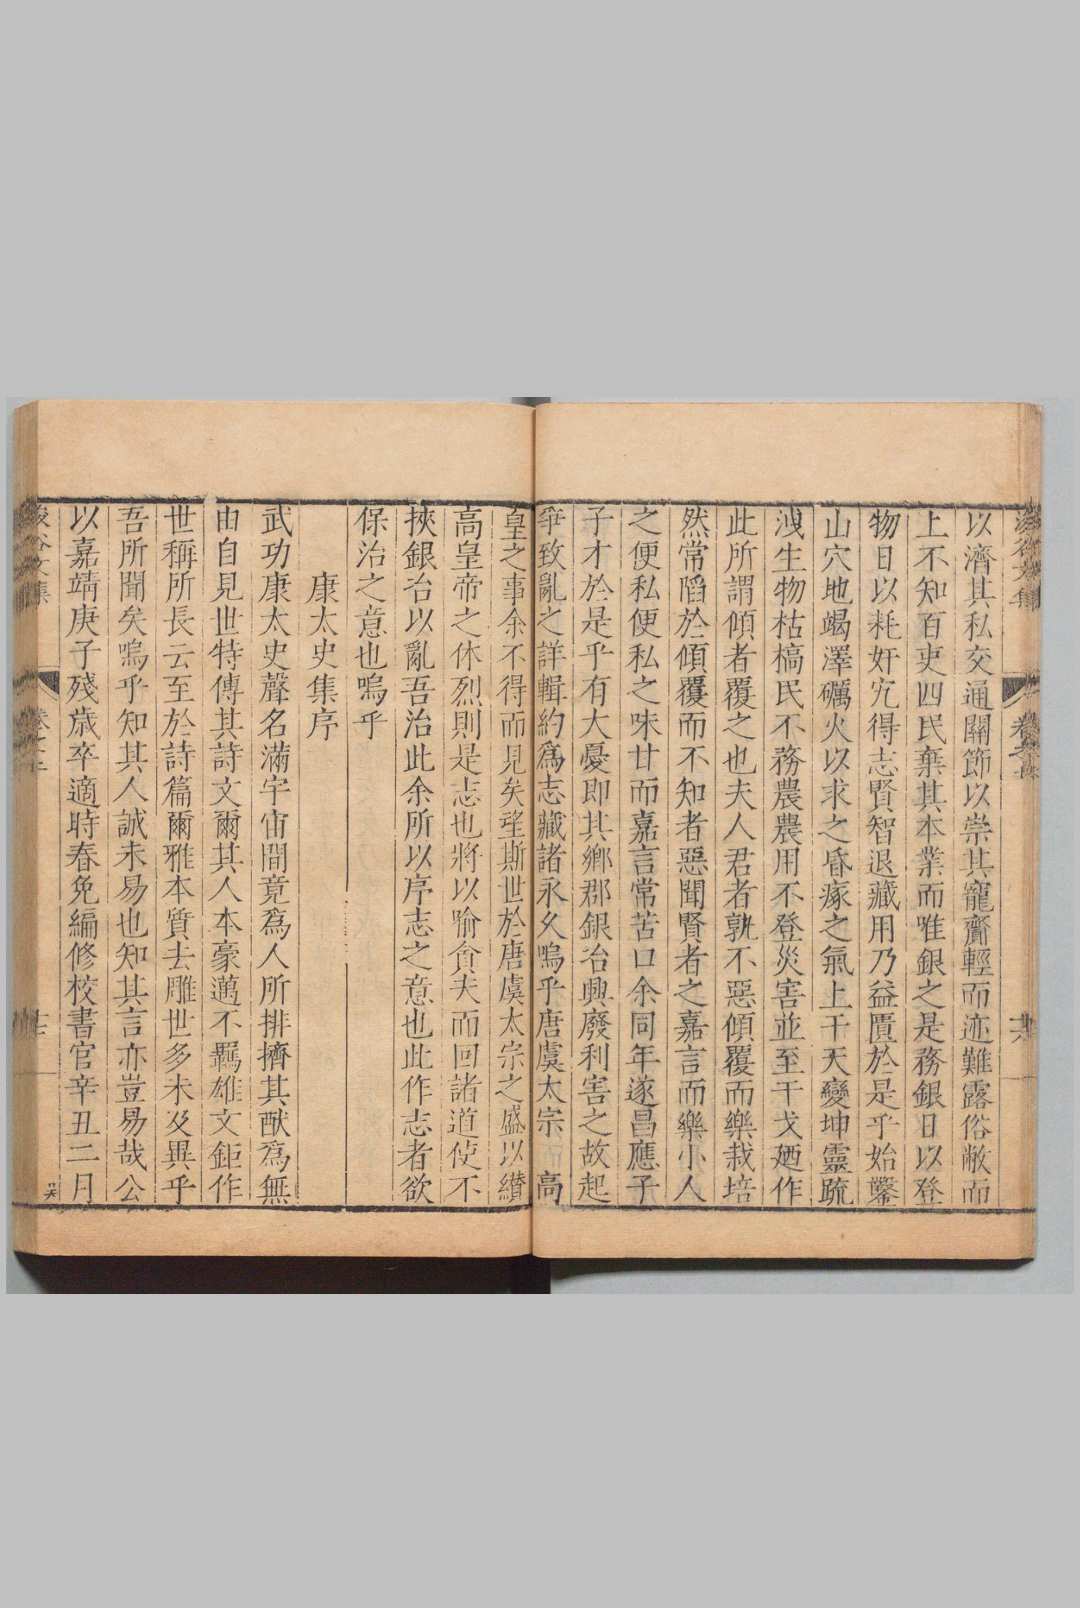 以濟其私交通關節以崇其寵齎輕而迹難露俗敝而
上不知百吏四民棄其本業而唯銀之是務銀日以登
物日以耗奸宄得志賢智退藏用乃益匱於是乎始鑿
山穴地竭澤礪火以求之昏瘃之氣上干天變坤靈疏
洩生物枯槁民不務農農用不登災害並至干戈廼作
此所謂傾者覆之也夫人君者孰不惡傾覆而樂栽培
然常陷於傾覆而不知者惡聞賢者之嘉言而樂小人
之便私便私之味甘而嘉言常苦口余同年遂昌應子
子才於是乎有大憂即其鄉郡銀冶興廢利害之故起
爭致亂之詳輯約爲志藏諸永久嗚乎唐虞太宗 高
皇之事余不得而見矣㞷斯世於唐虞太宗之盛以纘
高皇帝之休烈則是志也將以喻貪夫而回諸道使不
挾銀冶以亂吾治此余所以序志之意也此作志者欲
保治之意也嗚乎
康太史集序
武功康太史聲名滿宇宙間竟爲人所排擠其猷爲無
由自見世特傳其詩文爾其人本豪邁不羈雄文鉅作
世稱所長云至於詩篇爾雅本質去雕世多未及異乎
吾所聞矣嗚乎知其人誠未易也知其言亦豈易哉公
以嘉靖庚子殘歲卒適時春免編修校書官辛丑二月